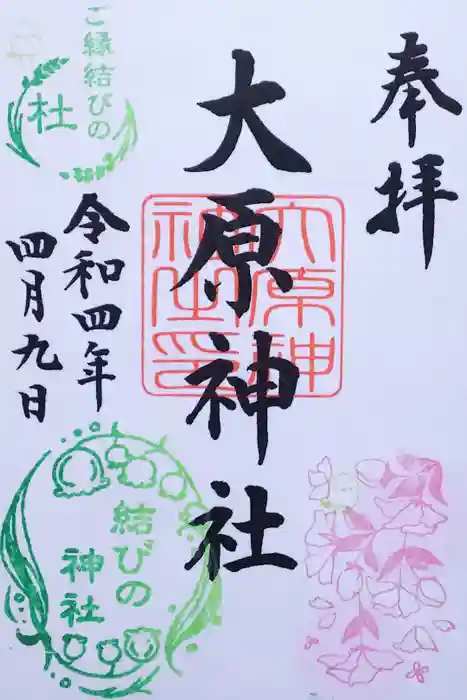 奉拝
大原神社
大原神
社印
神
令和四年
四月九日
ご縁結びの
社
結びの
神社